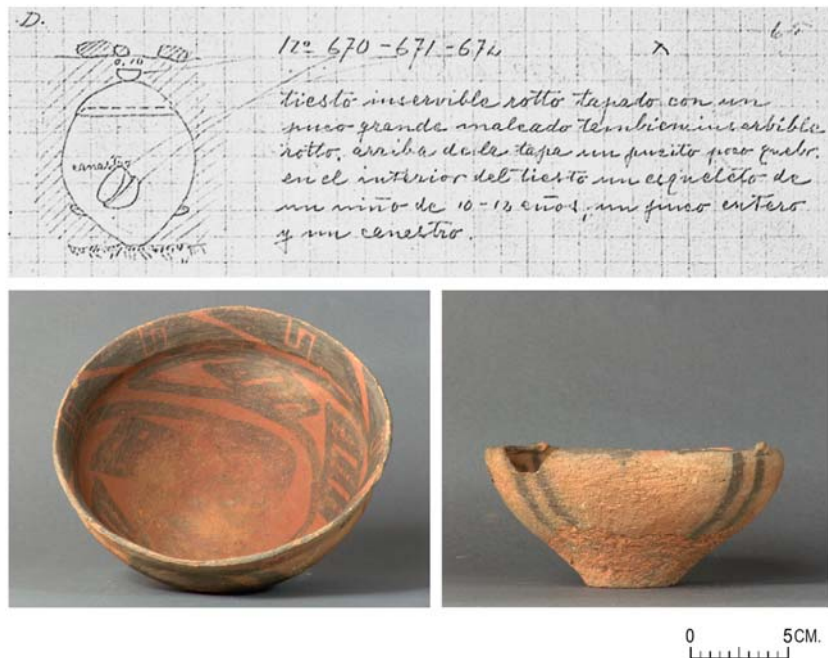 D.
Nº 670-671-672
6
tiesto inservible rotto tapado con un
puco grande maleado tembien inserbible
rotto. arriba de la tapa un puzito poco quebr.
en el interior del tiesto un esqueleto de
un niño de 10-12 años, un puco entero
y un canestro.
0.10
canastro
0 5 CM.